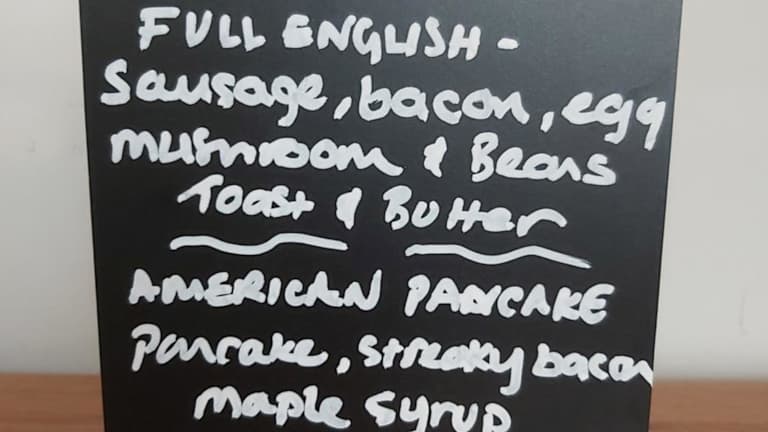 FULL ENGLISH -
Sausage, bacon, egg
mushroom & Beans
Toast & Butter
AMERICAN PANCAKE
Pancake, streaky bacon
Maple syrup